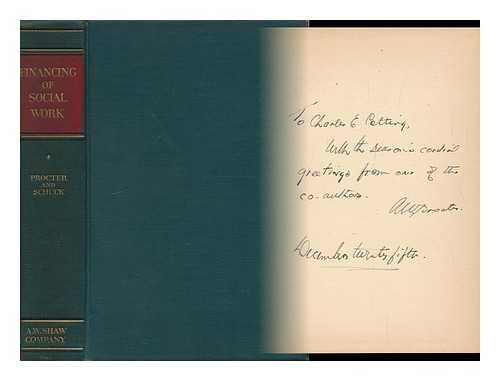 FINANCING
OF
SOCIAL
WORK
PROCTER
AND
SCHUCK
A.W. SHAW
COMPANY
To Charles E.
With the season's cordial
greetings from one of the
co-authors.
December twenty fifth.